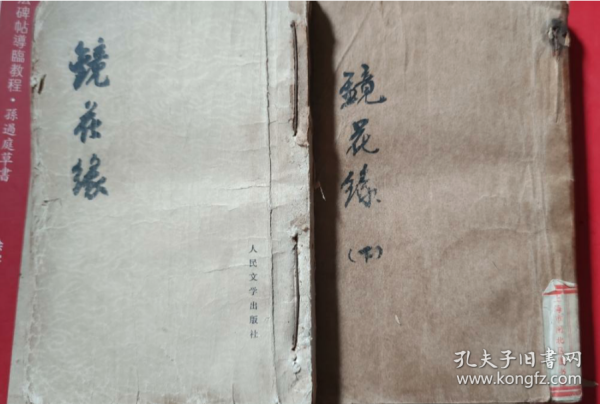 碑帖導臨教程·孫過庭草書
鏡花緣
人民文学出版社
鏡花緣
(下)
孔夫子旧书网
www.kongfz.com